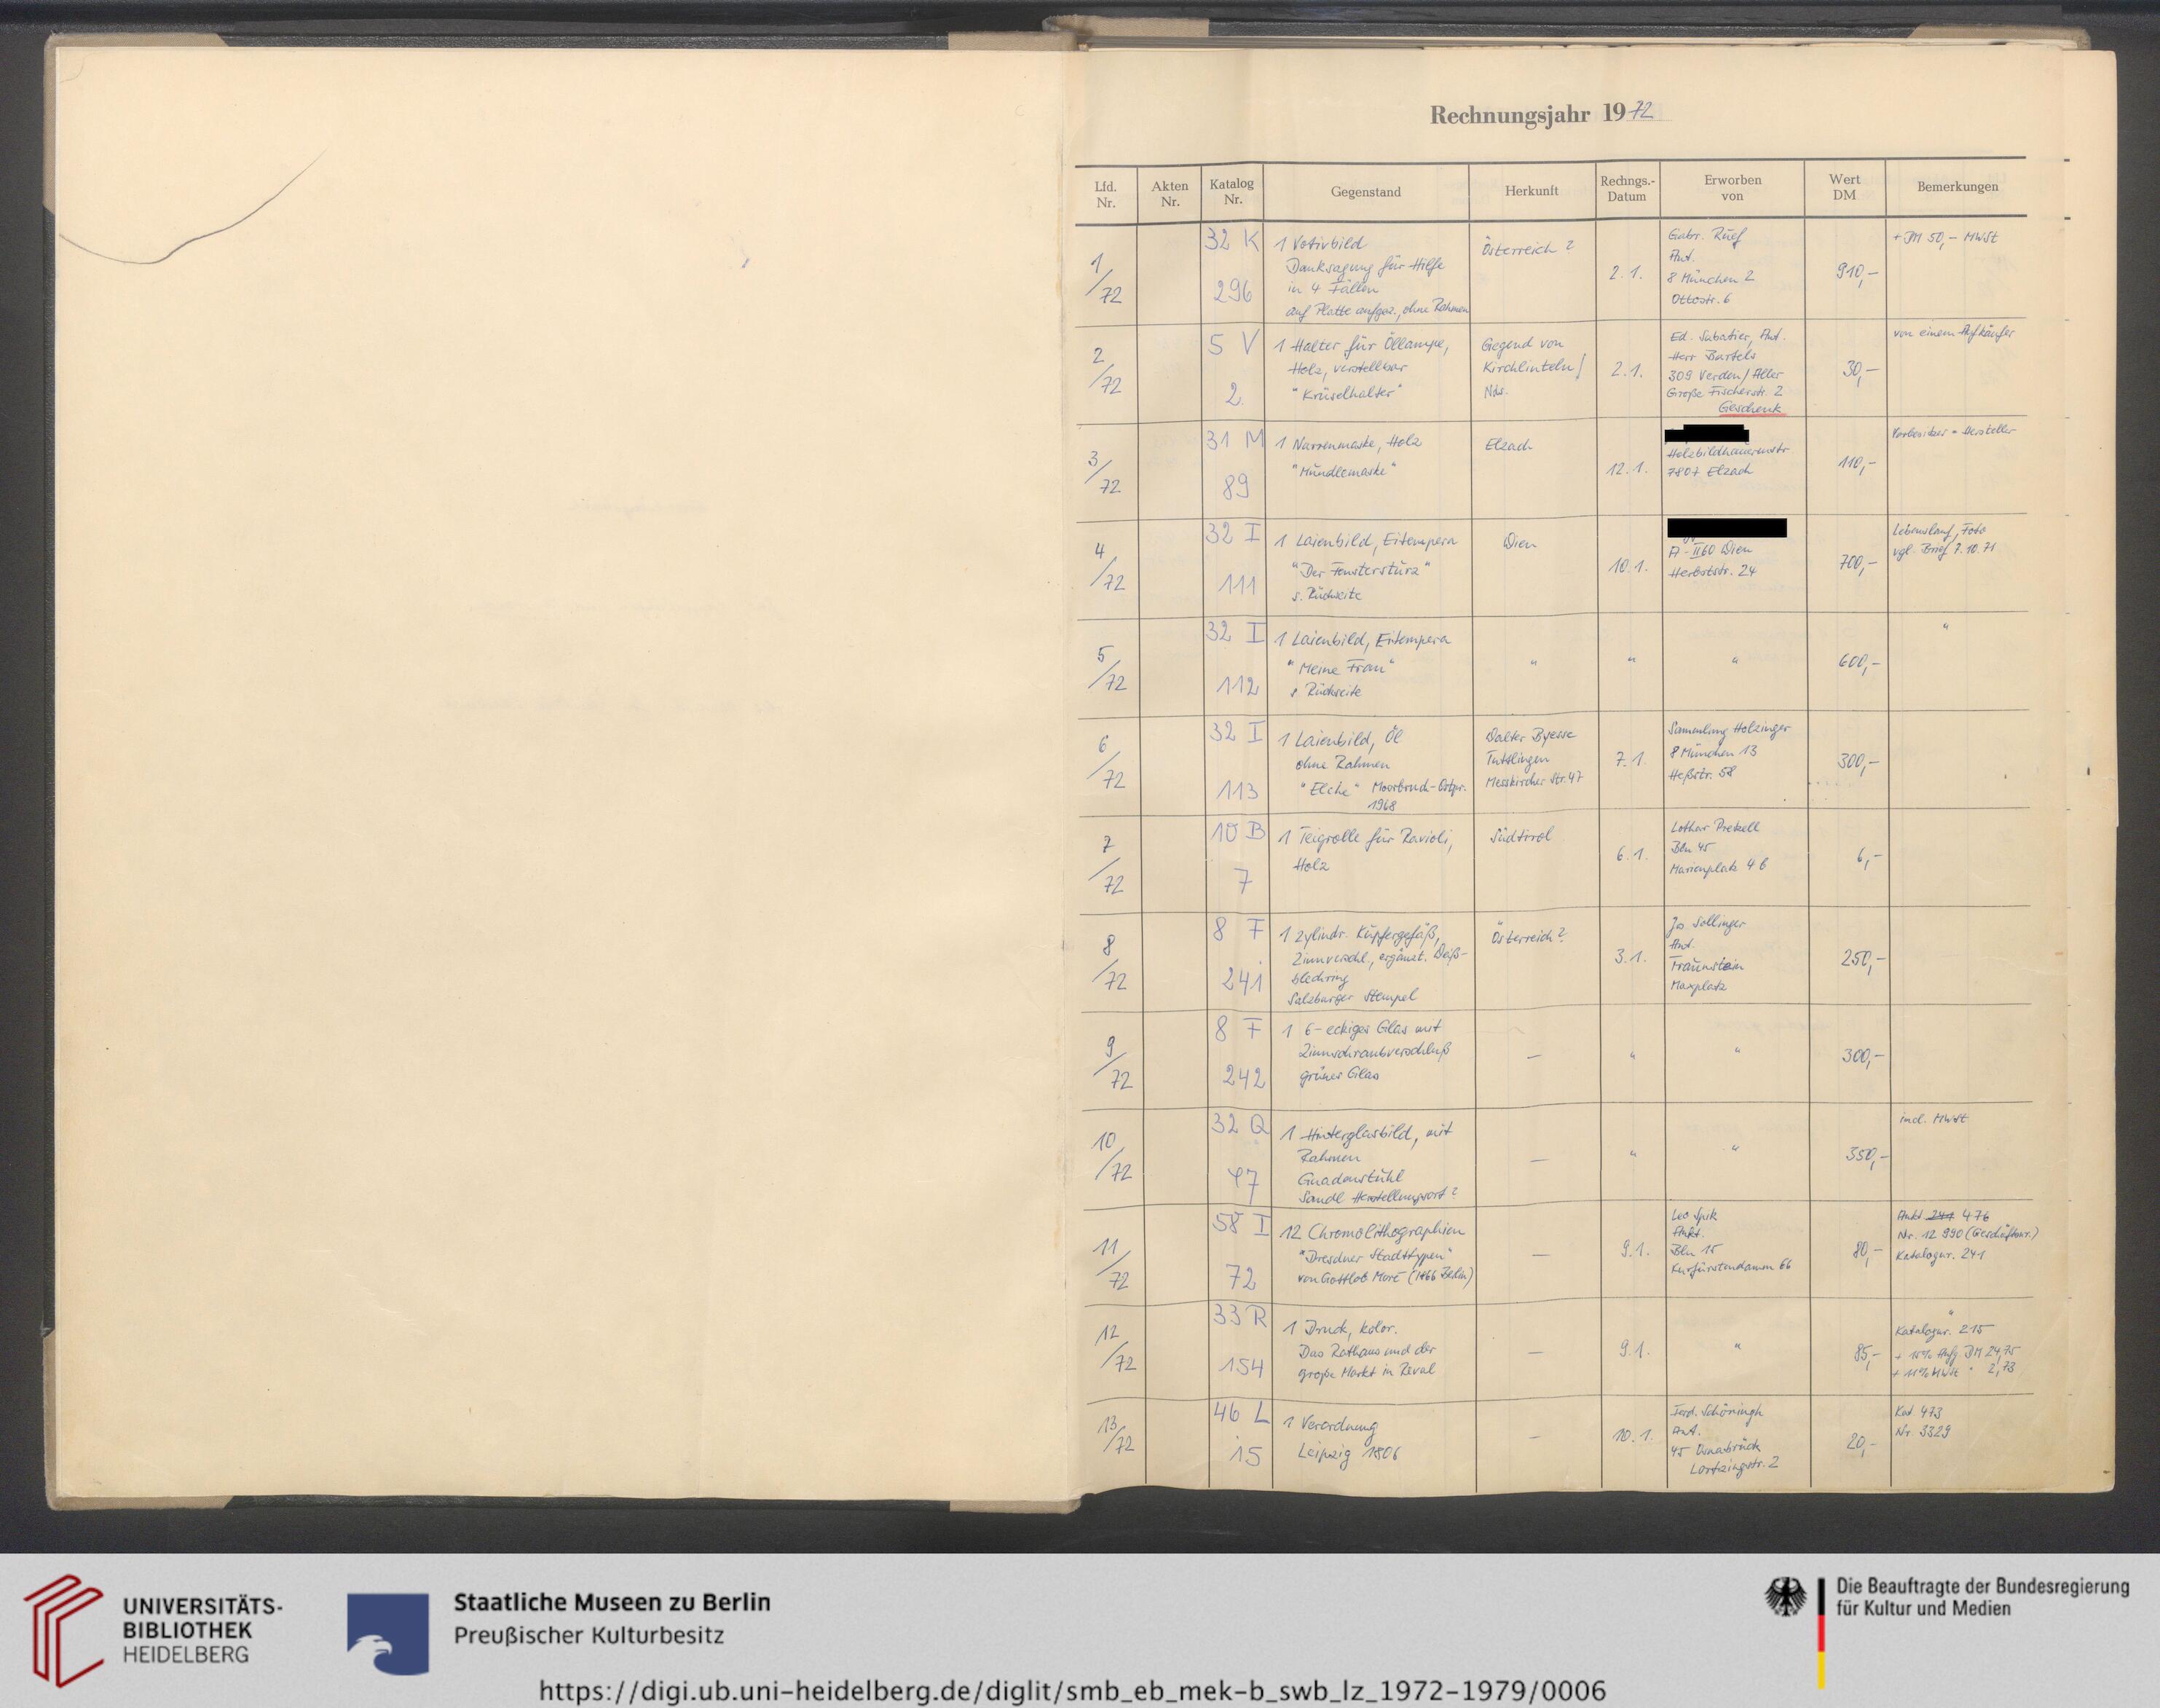 Rechnungsjahr 1972
Lfd. Nr.
Akten Nr.
Katalog Nr.
Gegenstand
Herkunft
Rechngs.-Datum
Erworben von
Wert DM
Bemerkungen
1/72
32 K
296
1 Votivbild
Danksagung für Hilfe
in 4 Fällen
auf Platte aufgez., ohne Rahmen
Österreich ?
2.1.
Gabr. Ruef
Ant.
8 München 2
Ottostr. 6
910,-
+ DM 50,- MWSt
2/72
5 V
2
1 Halter für Öllampe,
Holz, verstellbar
"Krüselhalter"
Gegend von
Kirchlinteln/
Nds.
2.1.
Ed. Sabatier, Ant.
Herr Bartels
309 Verden/Aller
Große Fischerstr. 2
Geschenk
30,-
von einem Aufkäufer
3/72
31 M
89
1 Narrenmaske, Holz
"Mündlemaske"
Elzach
12.1.
Holzbildhauermstr
7807 Elzach
110,-
Vorbesitzer = Hersteller
4/72
32 I
111
1 Laienbild, Eitempera
"Der Fenstersturz"
s. Rückseite
Wien
10.1.
A-1160 Wien
Herbststr. 24
700,-
Lebenslauf, Foto
vgl. Brief 7.10.71
5/72
32 I
112
1 Laienbild, Eitempera
"Meine Frau"
s Rückseite
"
"
"
600,-
"
6/72
32 I
113
1 Laienbild, Öl
ohne Rahmen
"Elche" Moorbruch-Ostpr.
1968
Walter Byesse
Tuttlingen
Messkircher Str. 47
7.1.
Sammlung Holzinger
8 München 13
Heßstr. 58
300,-
7/72
10 B
7
1 Teigrolle für Ravioli,
Holz
Südtirol
6.1.
Lothar Pretzell
Bln 45
Marienplatz 4 b
6,-
8/72
8 F
241
1 zylindr. Kupfergefäß,
Zinnverschl., ergänzt. Weiß-
blechring
Salzburger Stempel
Österreich ?
3.1.
Jos Sollinger
Ant.
Traunstein
Maxplatz
250,-
9/72
8 F
242
1 6-eckiges Glas mit
Zinnschraubverschluß
grünes Glas
—
"
"
300,-
10/72
32 Q
47
1 Hinterglasbild, mit
Rahmen
Gnadenstuhl
Sandl Herstellungsort ?
—
"
"
350,-
incl. MWSt
11/72
58 I
72
12 Chromolithographien
"Dresdner Stadttypen"
von Gottlob Moré (1866 Berlin)
—
9.1.
Leo Spik
Aukt.
Bln 15
Kurfürstendamm 66
80,-
Aukt 241 476
Nr. 12 990 (Geschäftsnr.)
Katalognr. 241
12/72
33 R
154
1 Druck, kolor.
Das Rathaus und der
große Markt in Reval
—
9.1.
"
85,-
"
Katalognr. 215
+ 15% Aufg DM 24,75
+ 11% MWSt " 2,73
13/72
46 L
15
1 Verordnung
Leipzig 1806
—
10.1.
Ferd. Schöningh
Ant.
45 Osnabrück
Lortzingstr. 2
20,-
Kat. 473
Nr. 3329
UNIVERSITÄTS-
BIBLIOTHEK
HEIDELBERG
Staatliche Museen zu Berlin
Preußischer Kulturbesitz
Die Beauftragte der Bundesregierung
für Kultur und Medien
https://digi.ub.uni-heidelberg.de/diglit/smb_eb_mek-b_swb_lz_1972-1979/0006